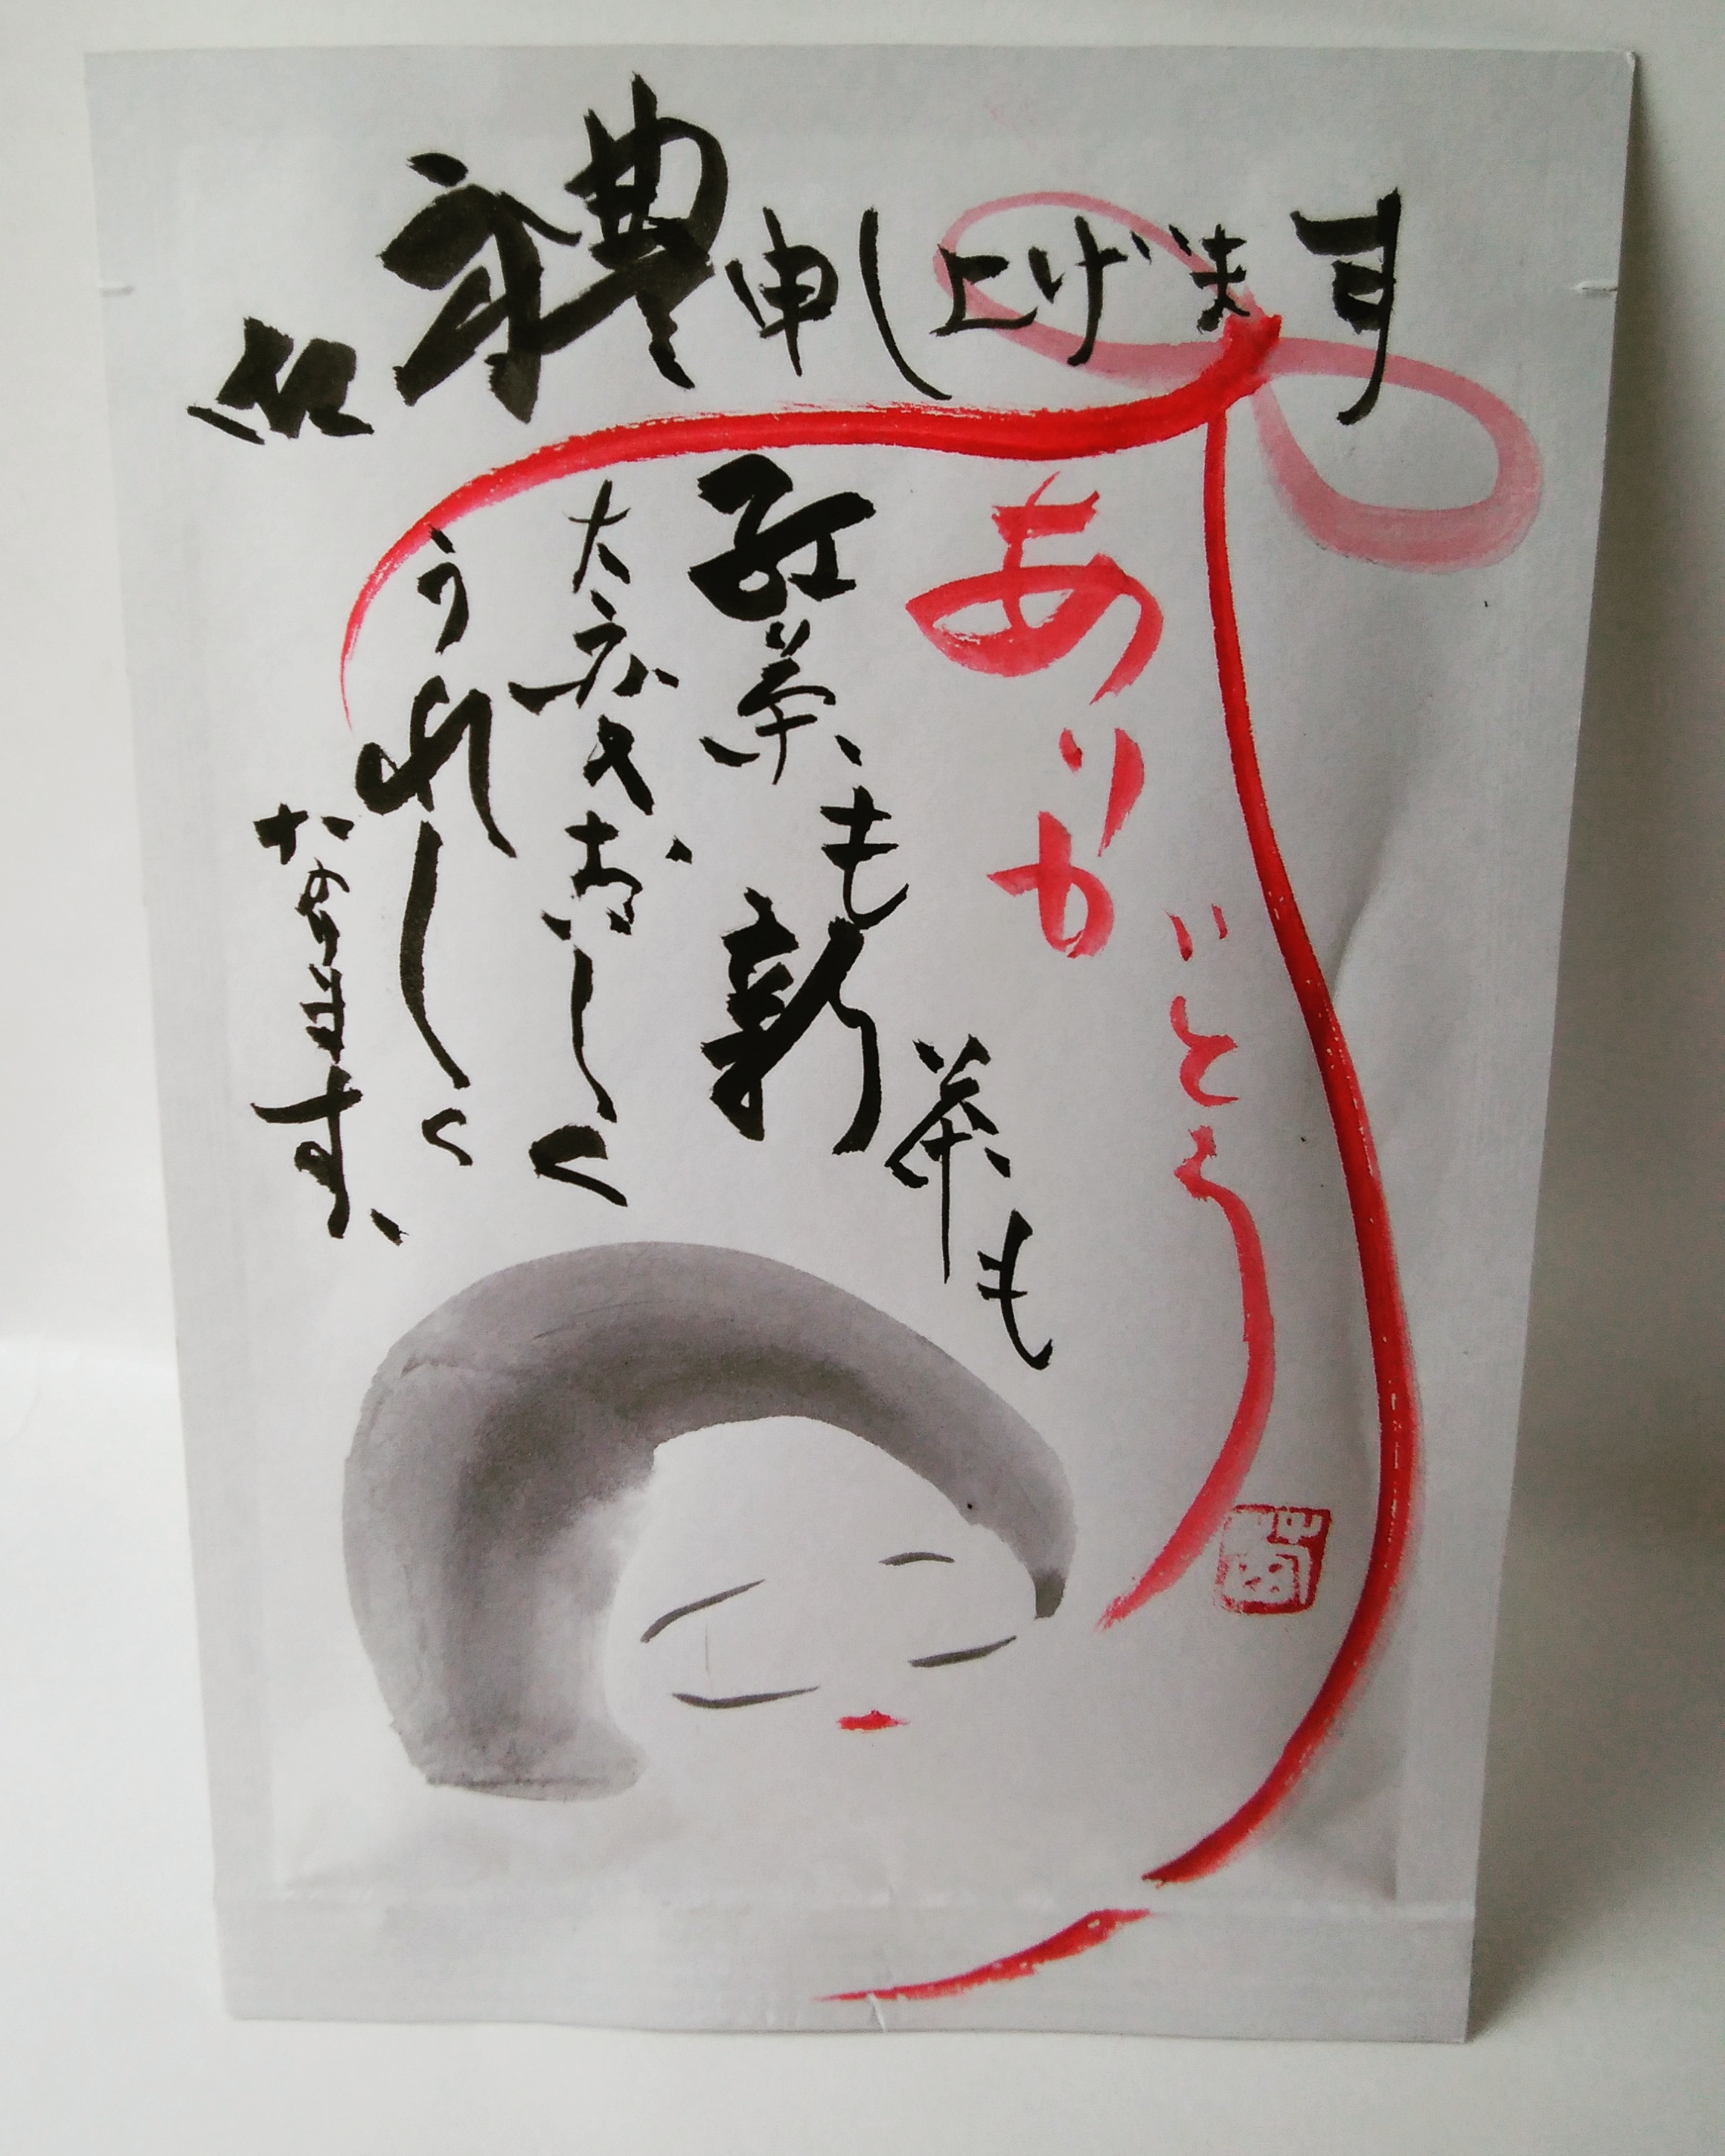 御禮申し上げます
ありがとう
紅茶も新茶も
大変おいしく
うれしく
なります、